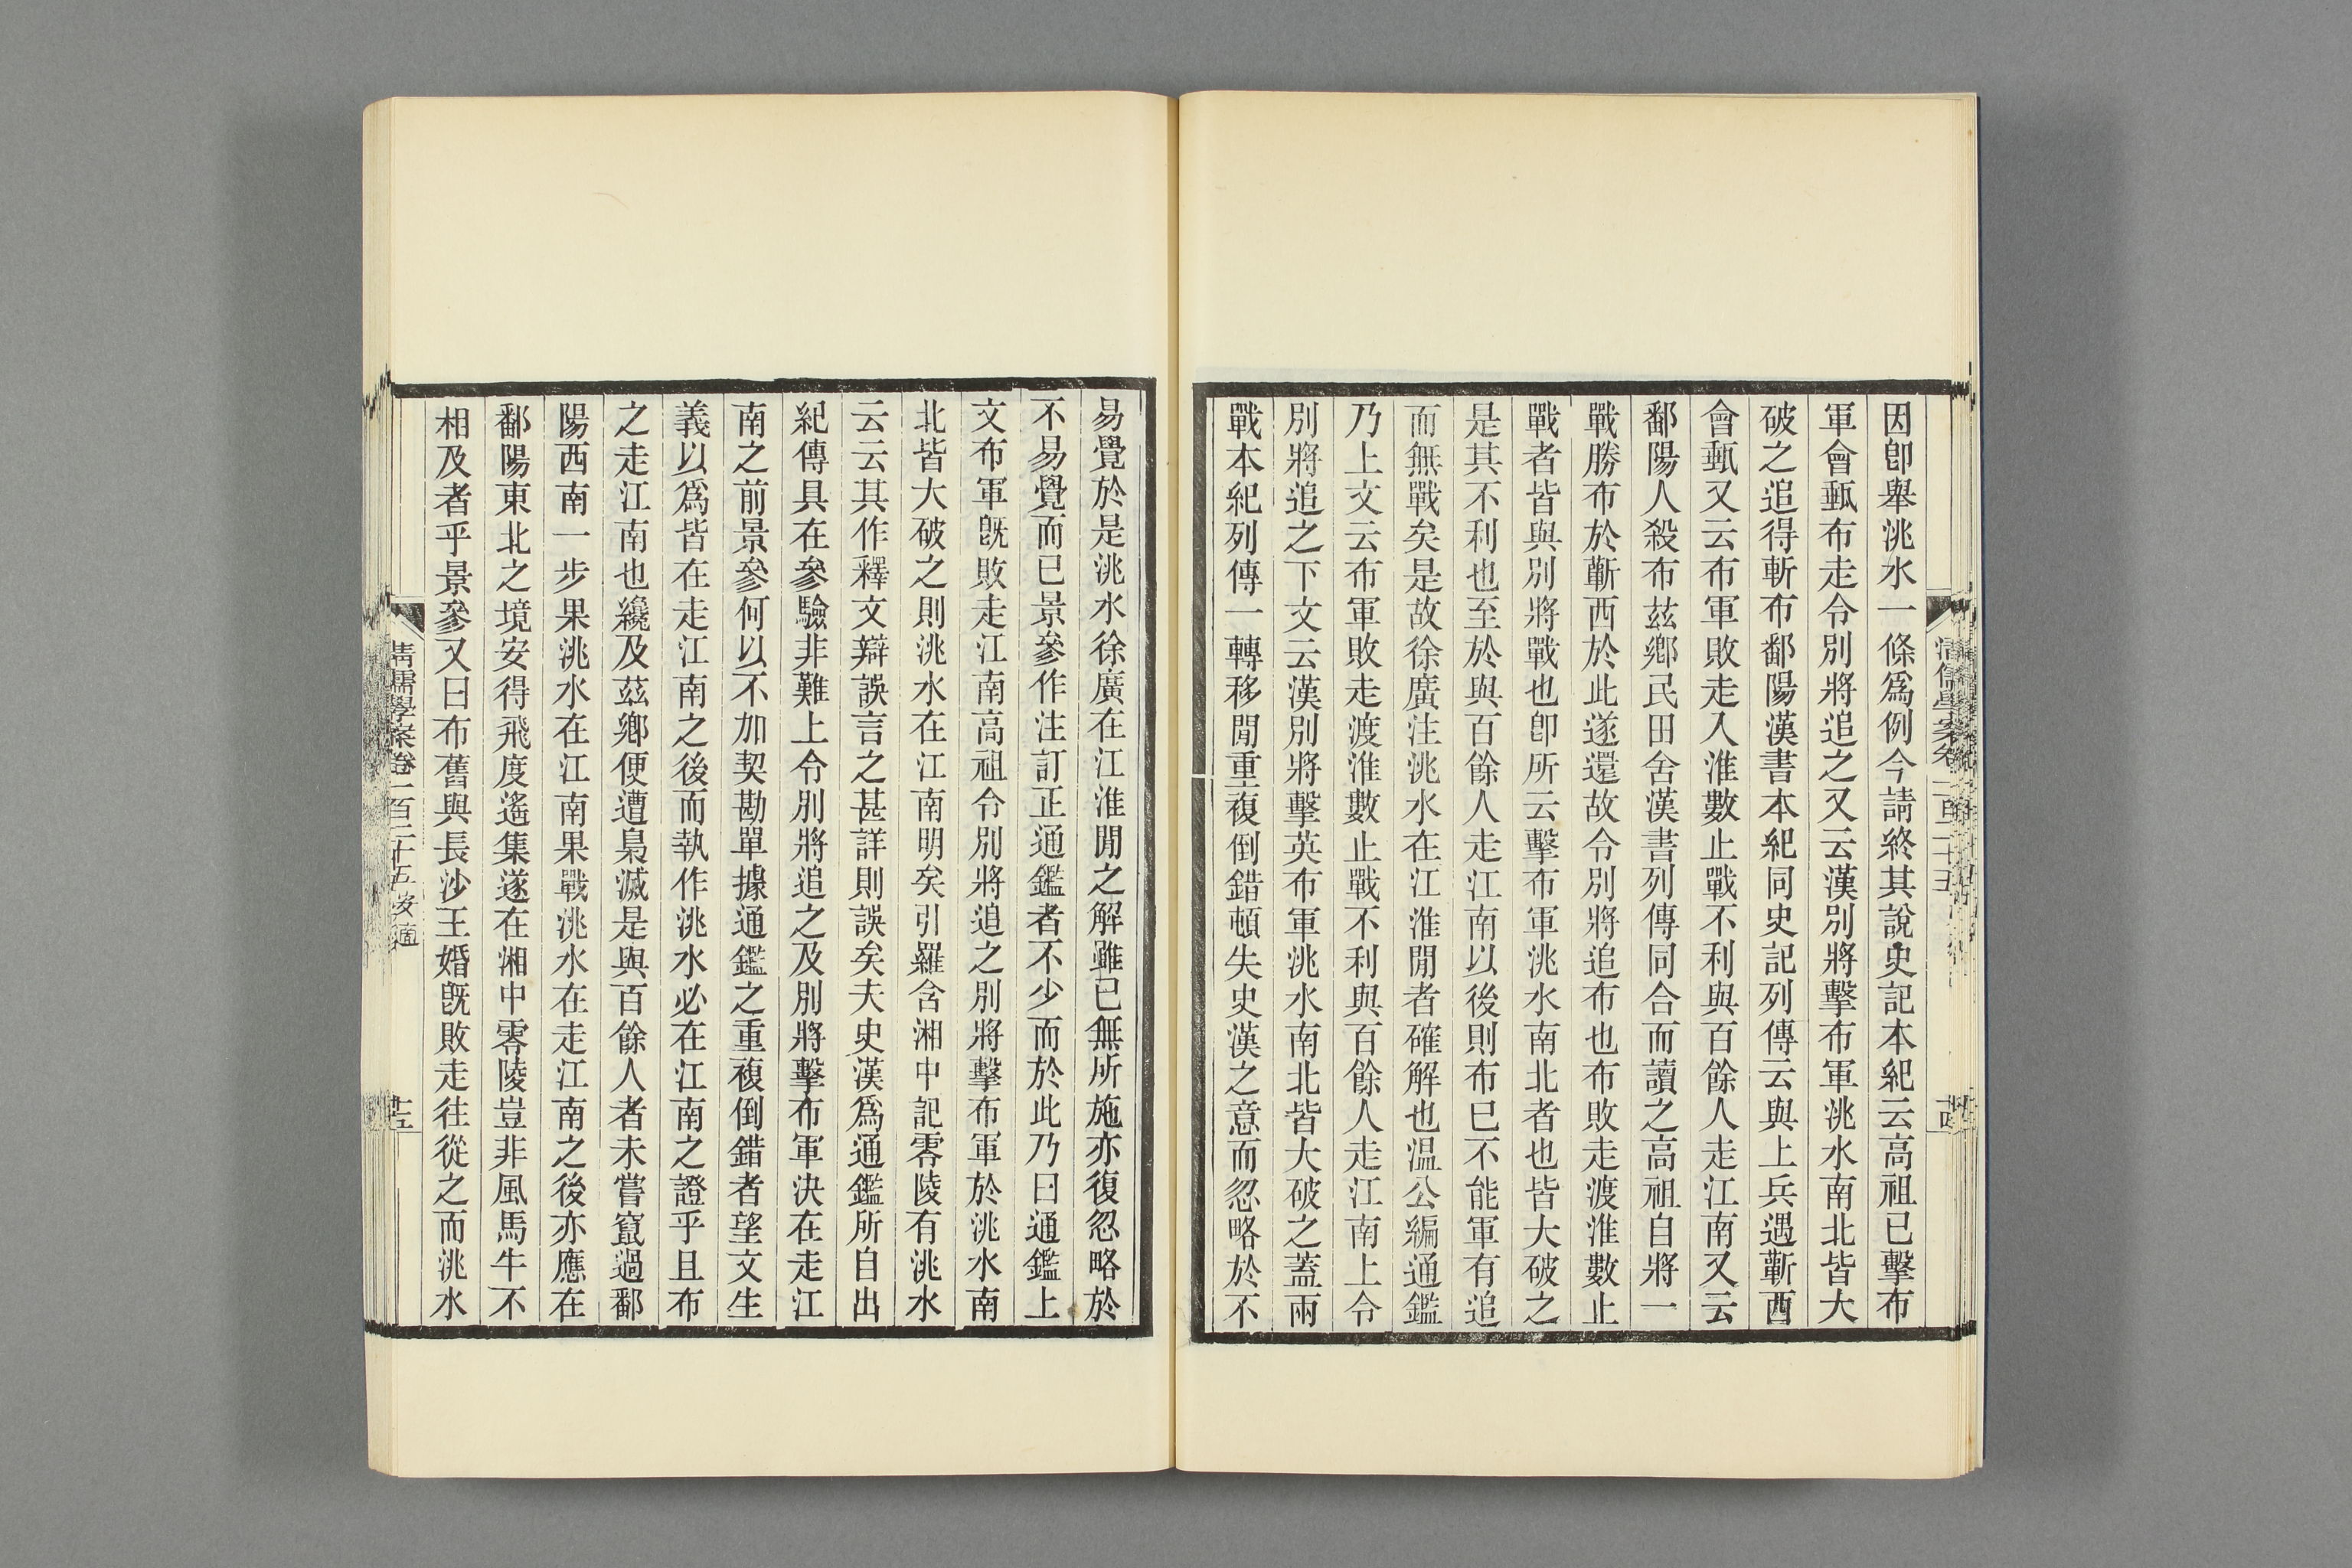 因卽舉洮水一條爲例今請終其說史記本紀云高祖已擊布
軍會甀布走令別將追之又云漢別將擊布軍洮水南北皆大
破之追得斬布鄱陽漢書本紀同史記列傳云與上兵遇蘄西
會甀又云布軍敗走入淮數止戰不利與百餘人走江南又云
鄱陽人殺布茲鄉民田舍漢書列傳同合而讀之高祖自將一
戰勝布於蘄西於此遂還故令別將追布也布敗走渡淮數止
戰者皆與別將戰也卽所云擊布軍洮水南北者也皆大破之
是其不利也至於與百餘人走江南以後則布已不能軍有追
而無戰矣是故徐廣注洮水在江淮閒者確解也温公編通鑑
乃上文云布軍敗走渡淮數止戰不利與百餘人走江南上令
別將追之下文云漢別將擊英布軍洮水南北皆大破之蓋兩
戰本紀列傳一轉移閒重複倒錯頓失史漢之意而忽略於不
易覺於是洮水徐廣在江淮閒之解雖已無所施亦復忽略於
不易覺而已景參作注訂正通鑑者不少而於此乃曰通鑑上
文布軍旣敗走江南高祖令別將追之別將擊布軍於洮水南
北皆大破之則洮水在江南明矣引羅含湘中記零陵有洮水
云云其作釋文辯誤言之甚詳則誤矣夫史漢爲通鑑所自出
紀傳具在參驗非難上令別將追之及別將擊布軍決在走江
南之前景參何以不加契勘單據通鑑之重複倒錯者望文生
義以爲皆在走江南之後而執作洮水必在江南之證乎且布
之走江南也纔及茲鄉便遭梟滅是與百餘人者未嘗竄過鄱
陽西南一步果洮水在江南果戰洮水在走江南之後亦應在
鄱陽東北之境安得飛度遙集遂在湘中零陵豈非風馬牛不
相及者乎景參又曰布舊與長沙王婚旣敗走往從之而洮水
清儒學案卷一百二十五 安適